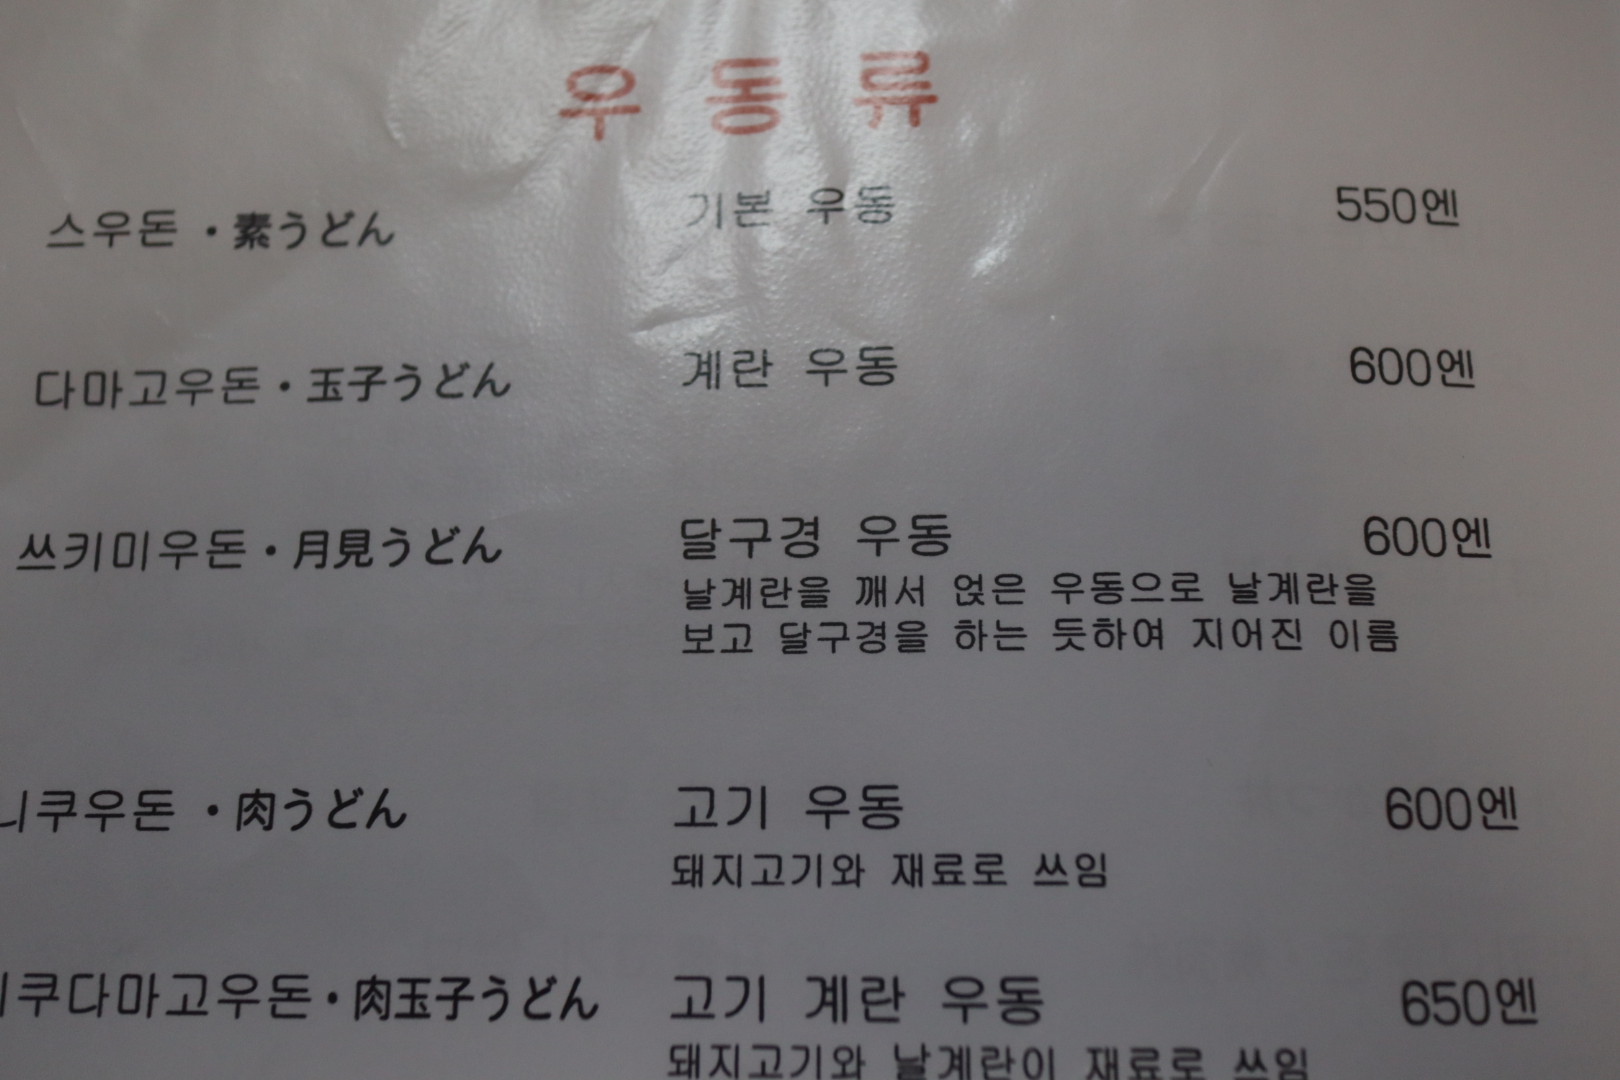 우 동 류
스우돈 ・素うどん 기본 우동 550엔
다마고우돈・玉子うどん 계란 우동 600엔
쓰키미우돈・月見うどん 달구경 우동 600엔
날계란을 깨서 얹은 우동으로 날계란을
보고 달구경을 하는 듯하여 지어진 이름
니쿠우돈 ・肉うどん 고기 우동 600엔
돼지고기와 재료로 쓰임
니쿠다마고우돈・肉玉子うどん 고기 계란 우동 650엔
돼지고기와 날계란이 재료로 쓰임